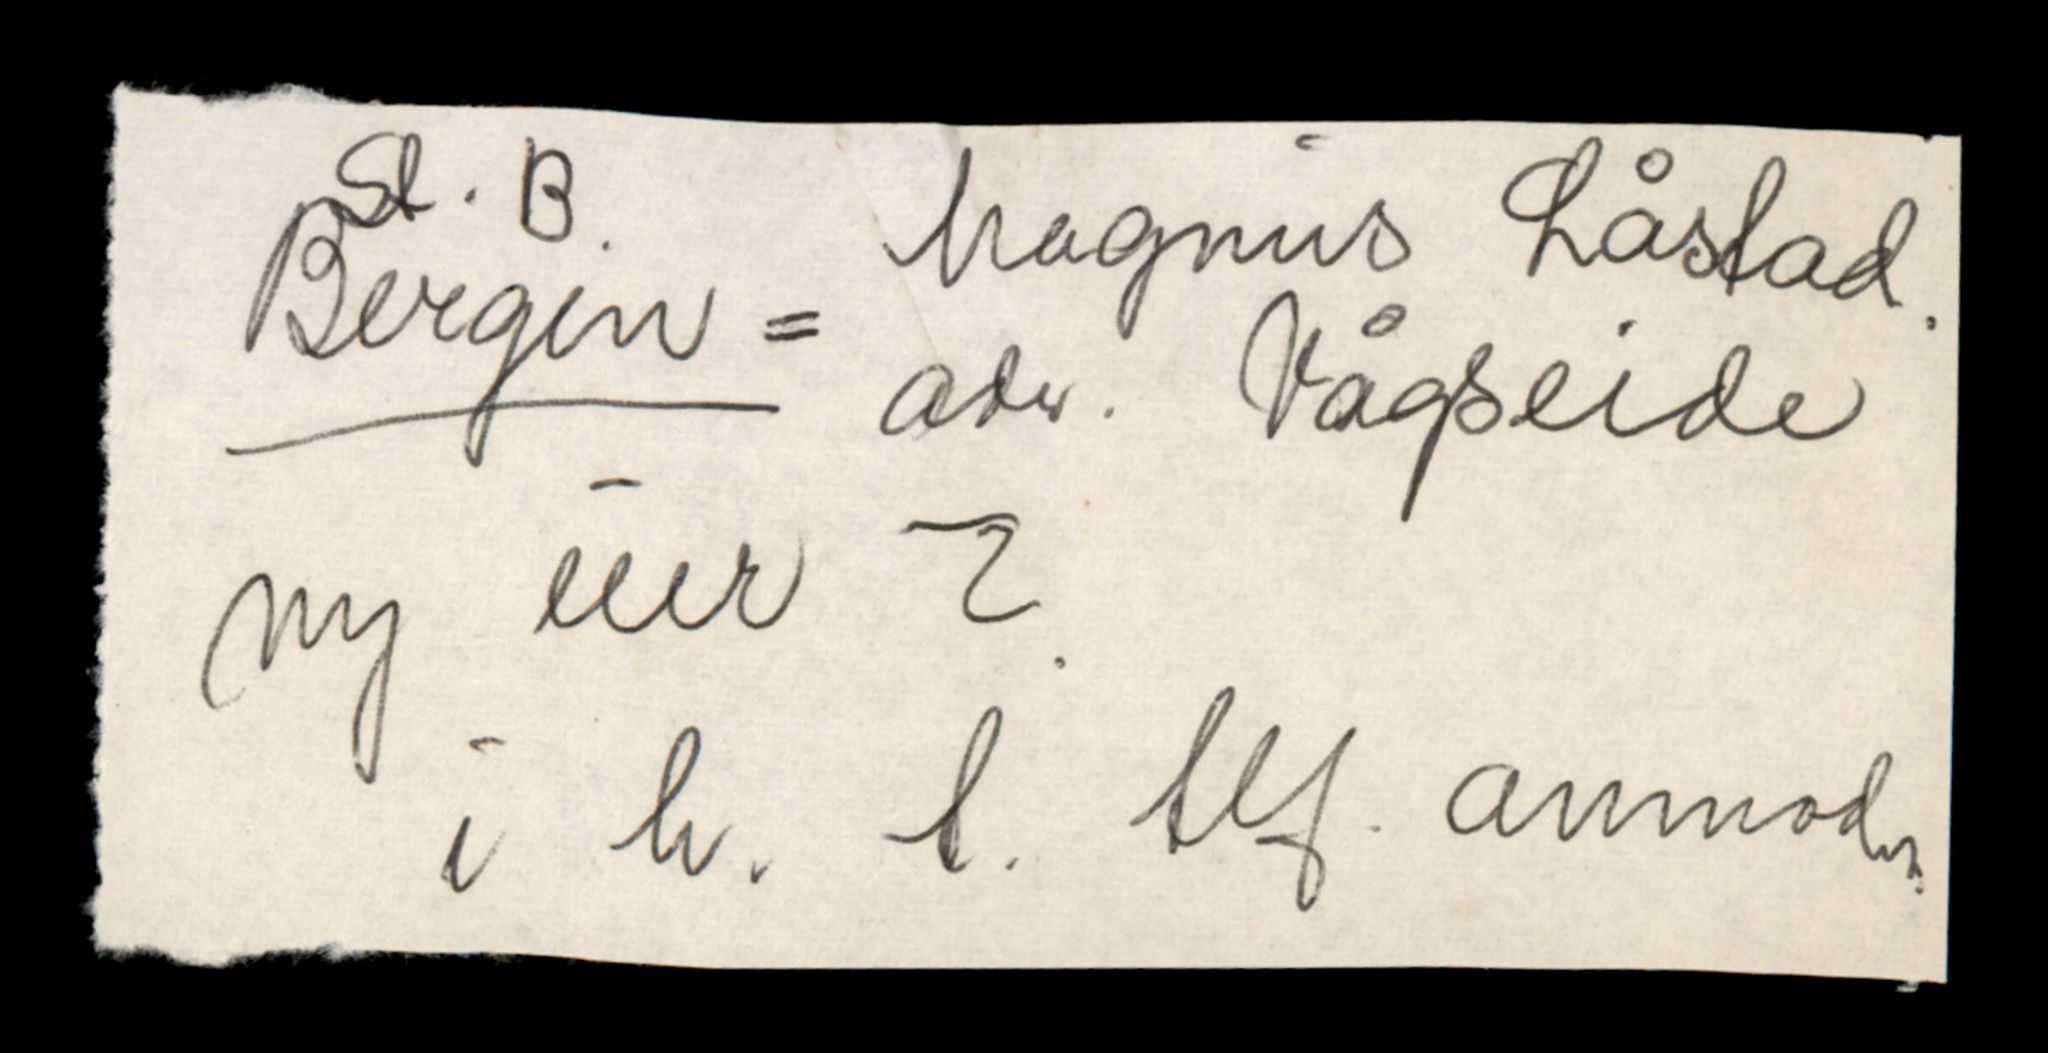 St. B.
Bergen = Magnus Låstad.
adv. Vågseide
ny eier ?
i h. t. tlf. anmodn.